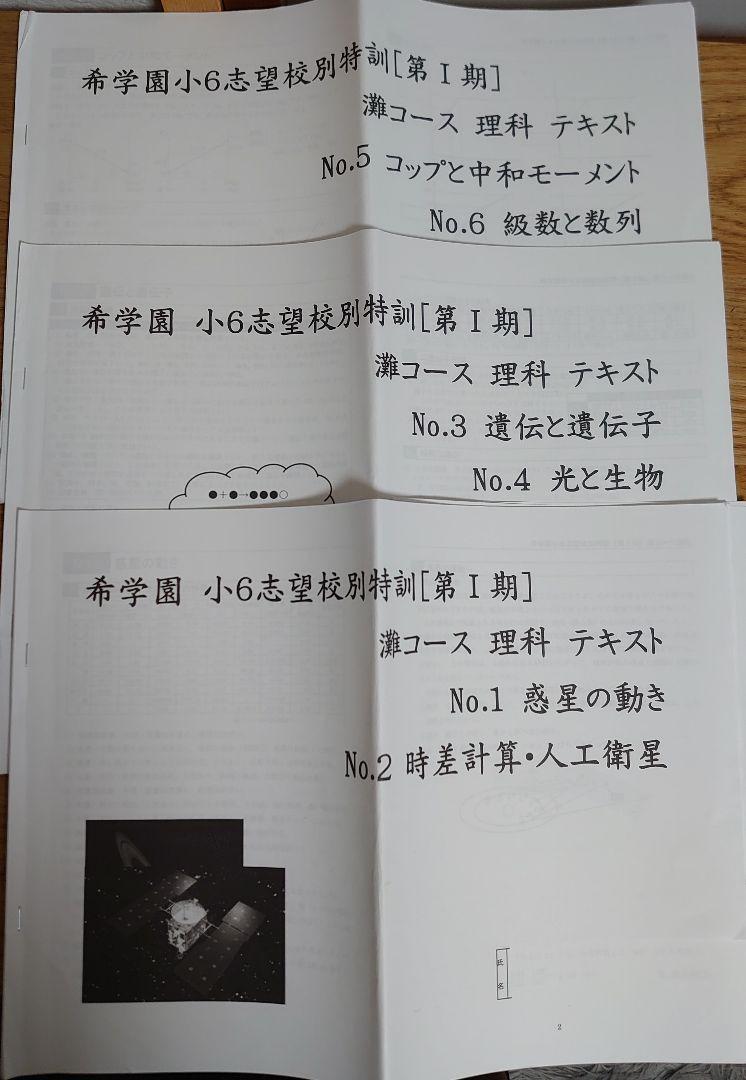 希学園小6志望校別特訓[第Ⅰ期]
灘コース 理科 テキスト
No.5 コップと中和モーメント
No.6 級数と数列
希学園 小6志望校別特訓[第Ⅰ期]
灘コース 理科 テキスト
No.3 遺伝と遺伝子
No.4 光と生物
●+●→●●●○
希学園 小6志望校別特訓[第Ⅰ期]
灘コース 理科 テキスト
No.1 惑星の動き
No.2 時差計算・人工衛星
氏名
2